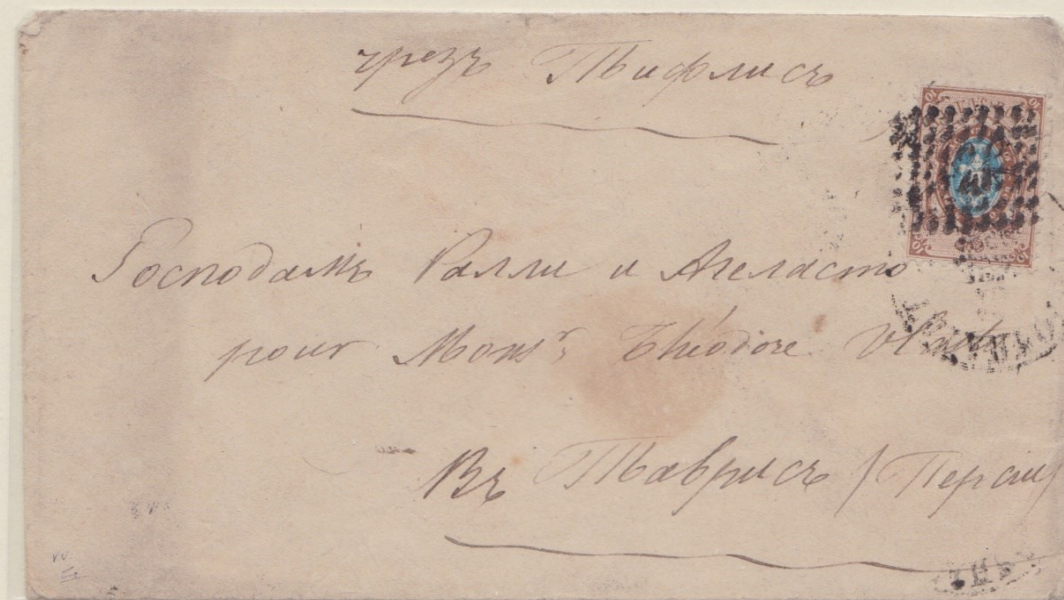 чрезъ Тифлисъ
Господамъ Ралли и Агеласто
pour Monsr Théodore
Въ Таврисъ (Персии